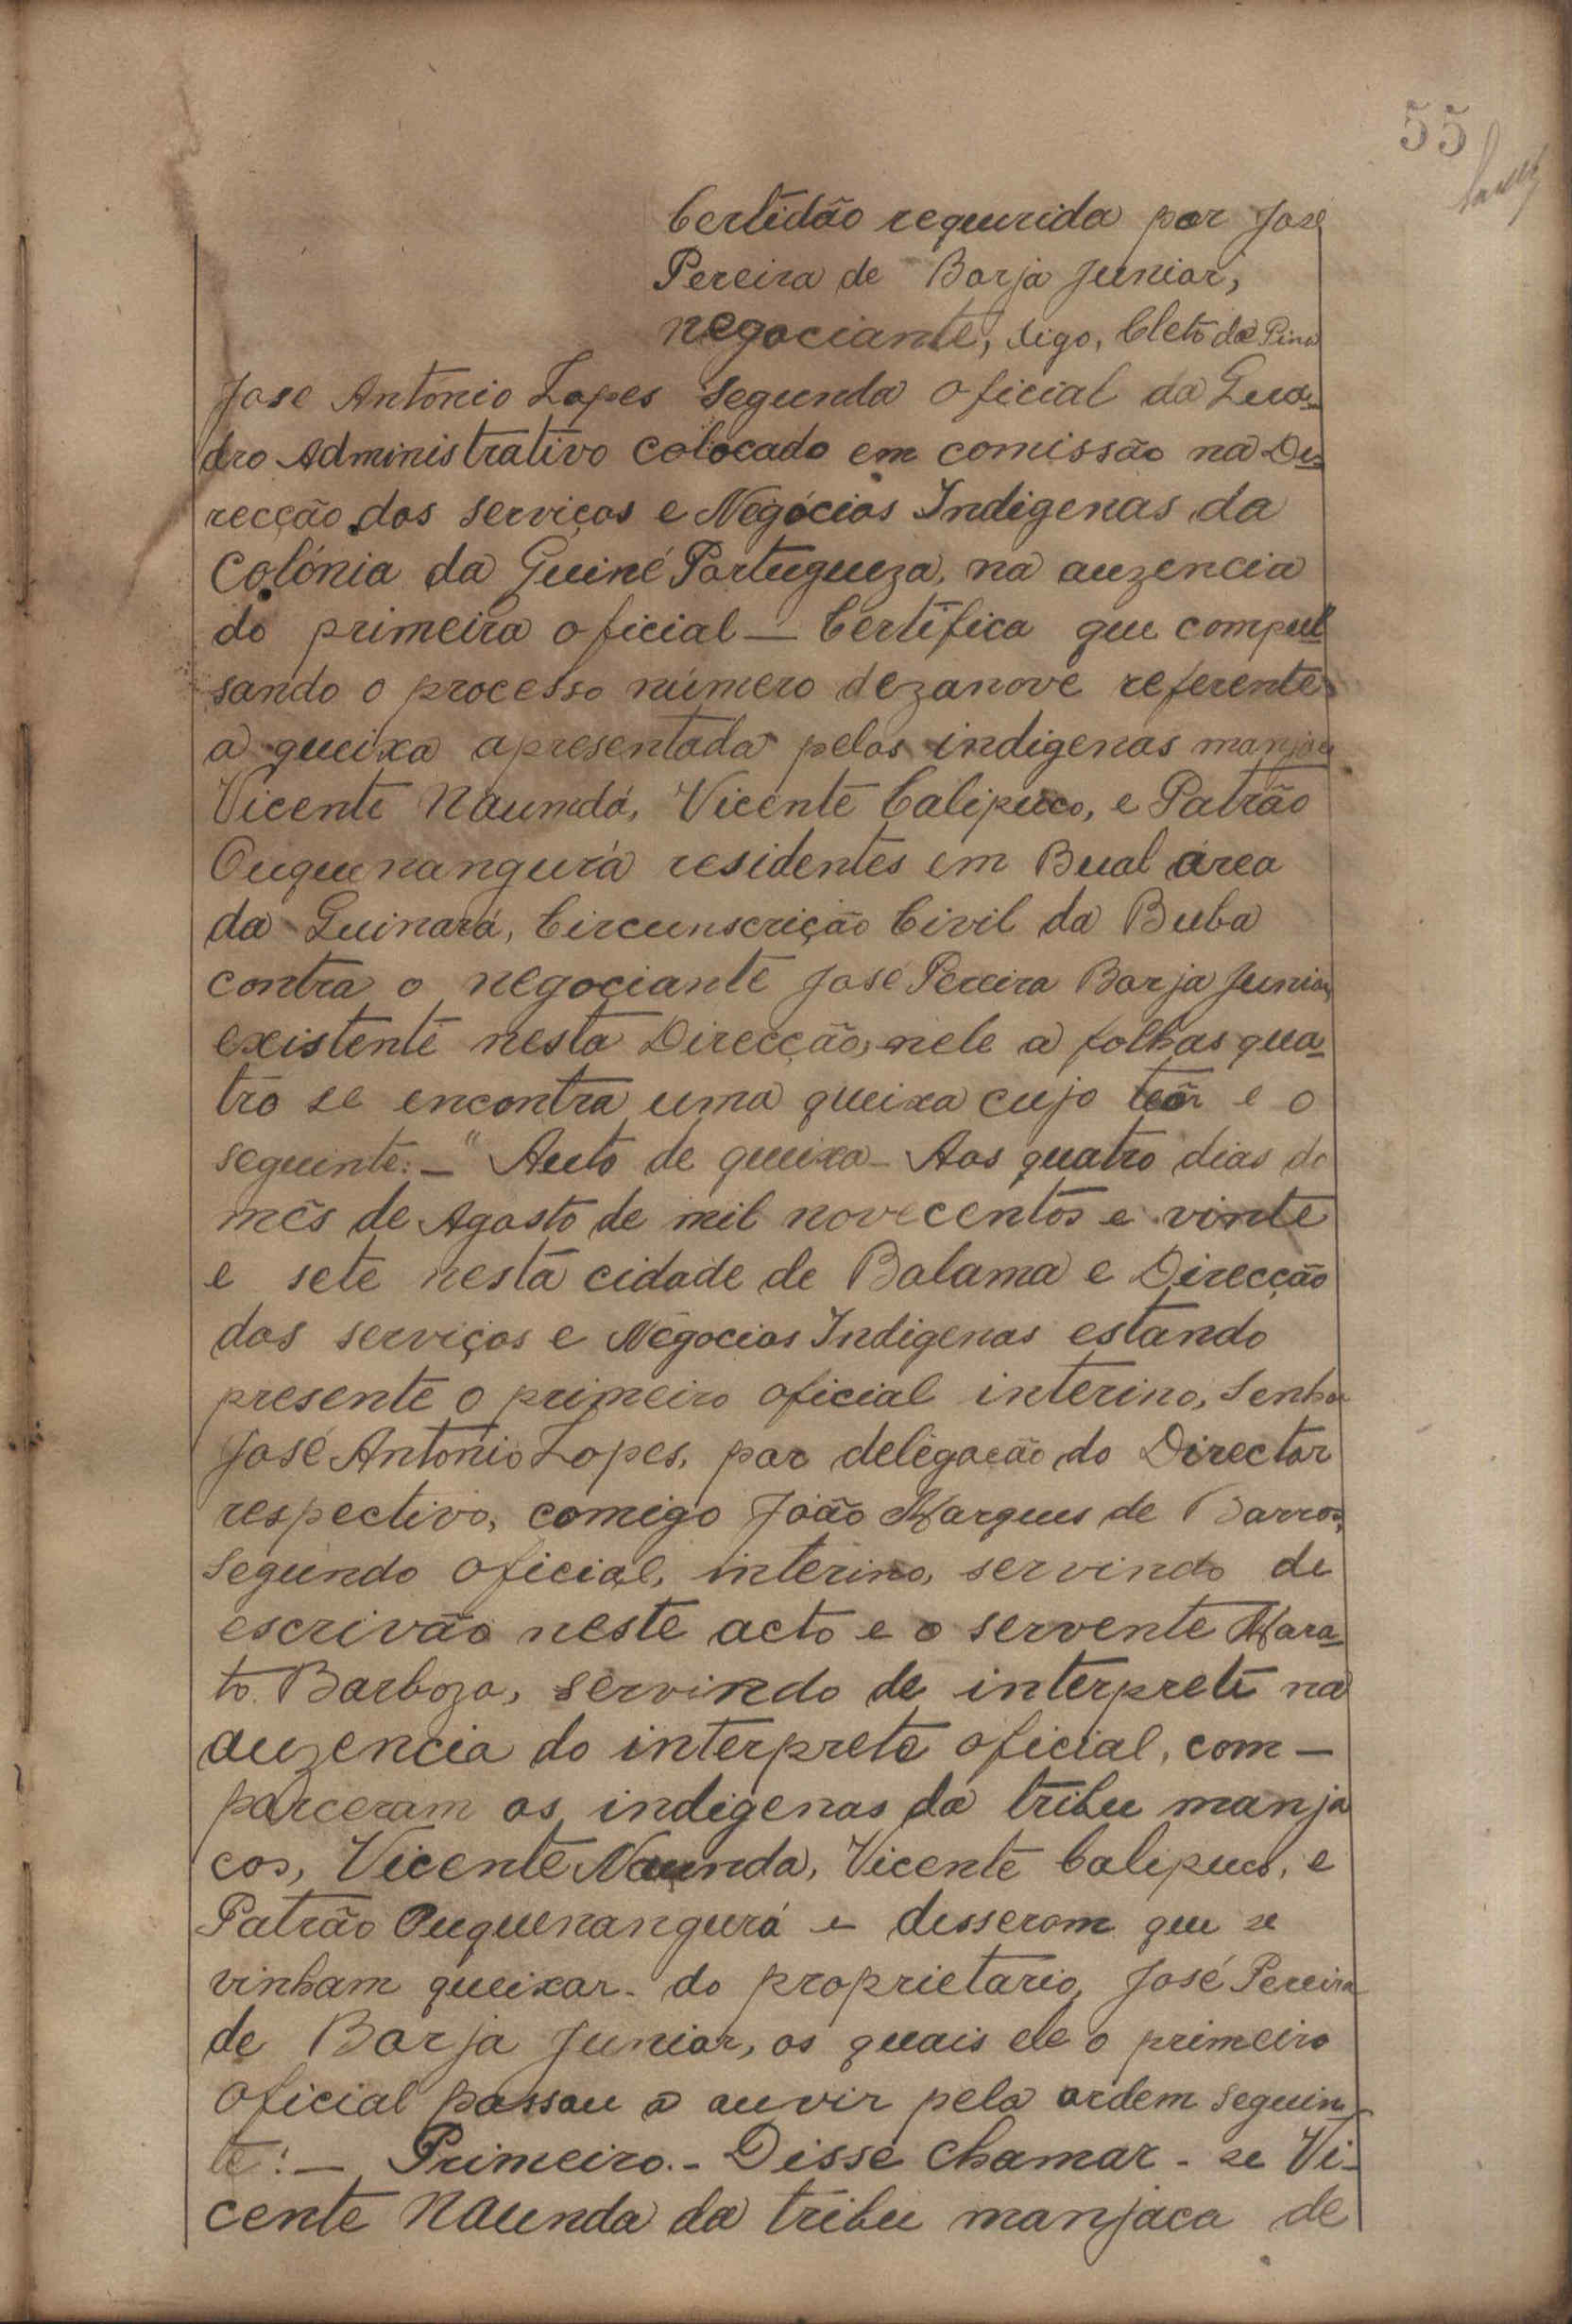 55
Certidão requerida por José
Pereira de Borja Junior,
negociante, digo, Cleto da Pina
Jose Antonio Lopes segundo oficial do Qua-
dro Administrativo colocado em comissão na Di-
recção dos serviços e Negócios Indigenas da
Colónia da Guiné Portugueza, na auzencia
do primeiro oficial — Certifico que compul-
sando o processo número dezanove referente
a queixa apresentada pelos indigenas manjacu
Vicente Naundá, Vicente Calipuco, e Patrão
Ouquenangurá residentes em Bual área
da Guinará, Circunscrição Civil da Buba
contra o negociante José Pereira Borja Junior,
existente nesta Direcção, nele a folhas qua-
tro se encontra uma queixa cujo teôr e o
seguinte: — "Auto de queixa — Aos quatro dias do
mês de Agosto de mil novecentos e vinte
e sete nesta cidade de Bolama e Direcção
dos serviços e Négocios Indigenas estando
presente o primeiro oficial interino, Senhor
José Antonio Lopes, por delegacão do Director
respectivo, comigo João Marques de Barros,
segundo oficial, interino, servindo de
escrivão neste acto e o servente Hara-
to Barboza, servindo de interprete na
auzencia do interprete oficial, com —
parceram os indigenas da tribu manja
cos, Vicente Naunda, Vicente Calipuco, e
Patrão Ouquenangurá e disseram que se
vinham queixar - do proprietario, José Pereira
de Borja Junior, os quais ele o primeiro
oficial passou a ouvir pela ordem seguin-
te: — Primeiro. - Disse chamar - se Vi-
cente Naunda da tribu manjaca de